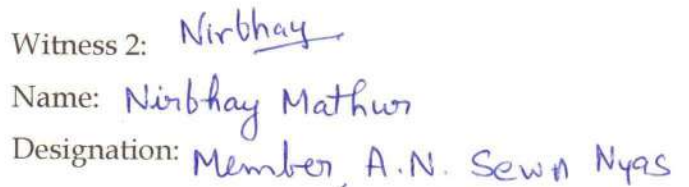 Witness 2: Nirbhay
Name: Nirbhay Mathur
Designation: Member, A.N. Sewa Nyas